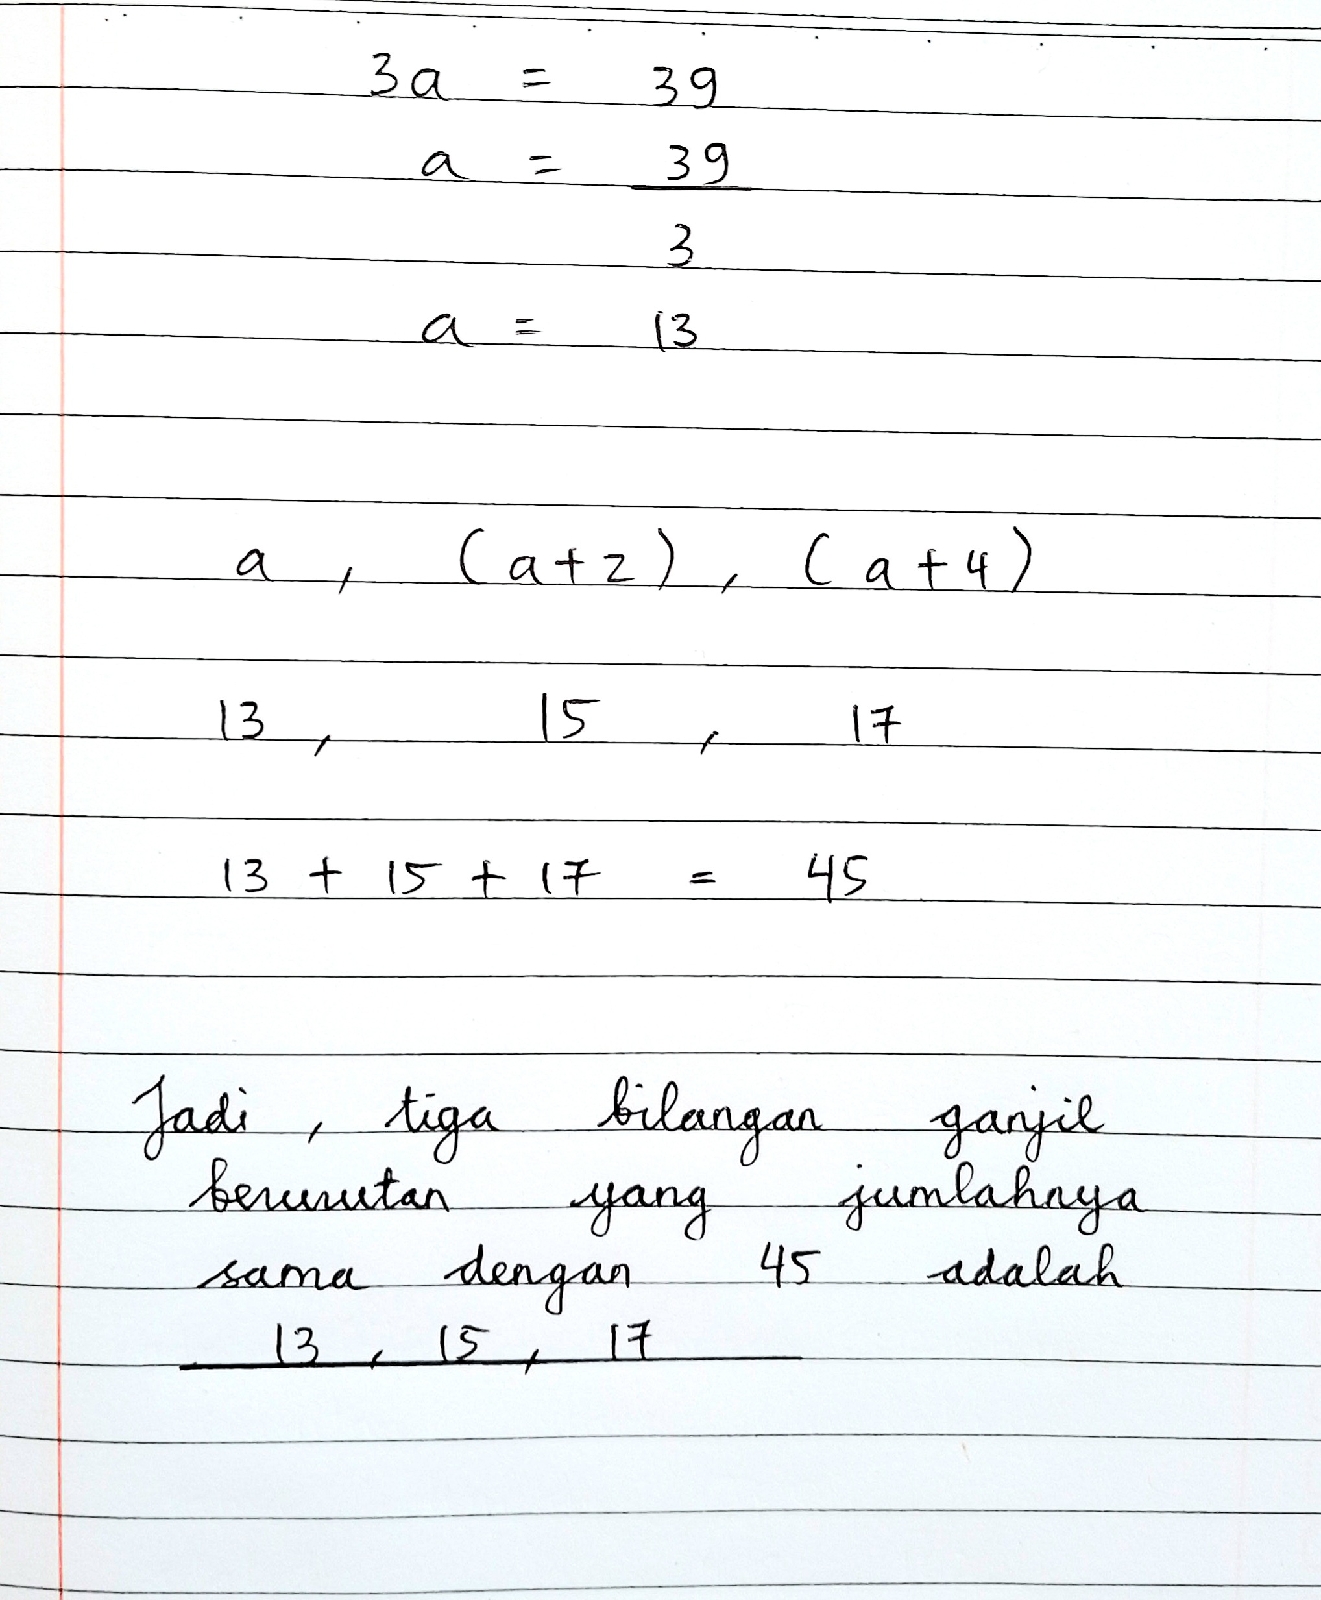 3a = 39
a = 39
3
a = 13
a , (a+2), (a+4)
13, 15, 17
13 + 15 + 17 = 45
Jadi, tiga bilangan ganjil
berurutan yang jumlahnya
sama dengan 45 adalah
13, 15, 17